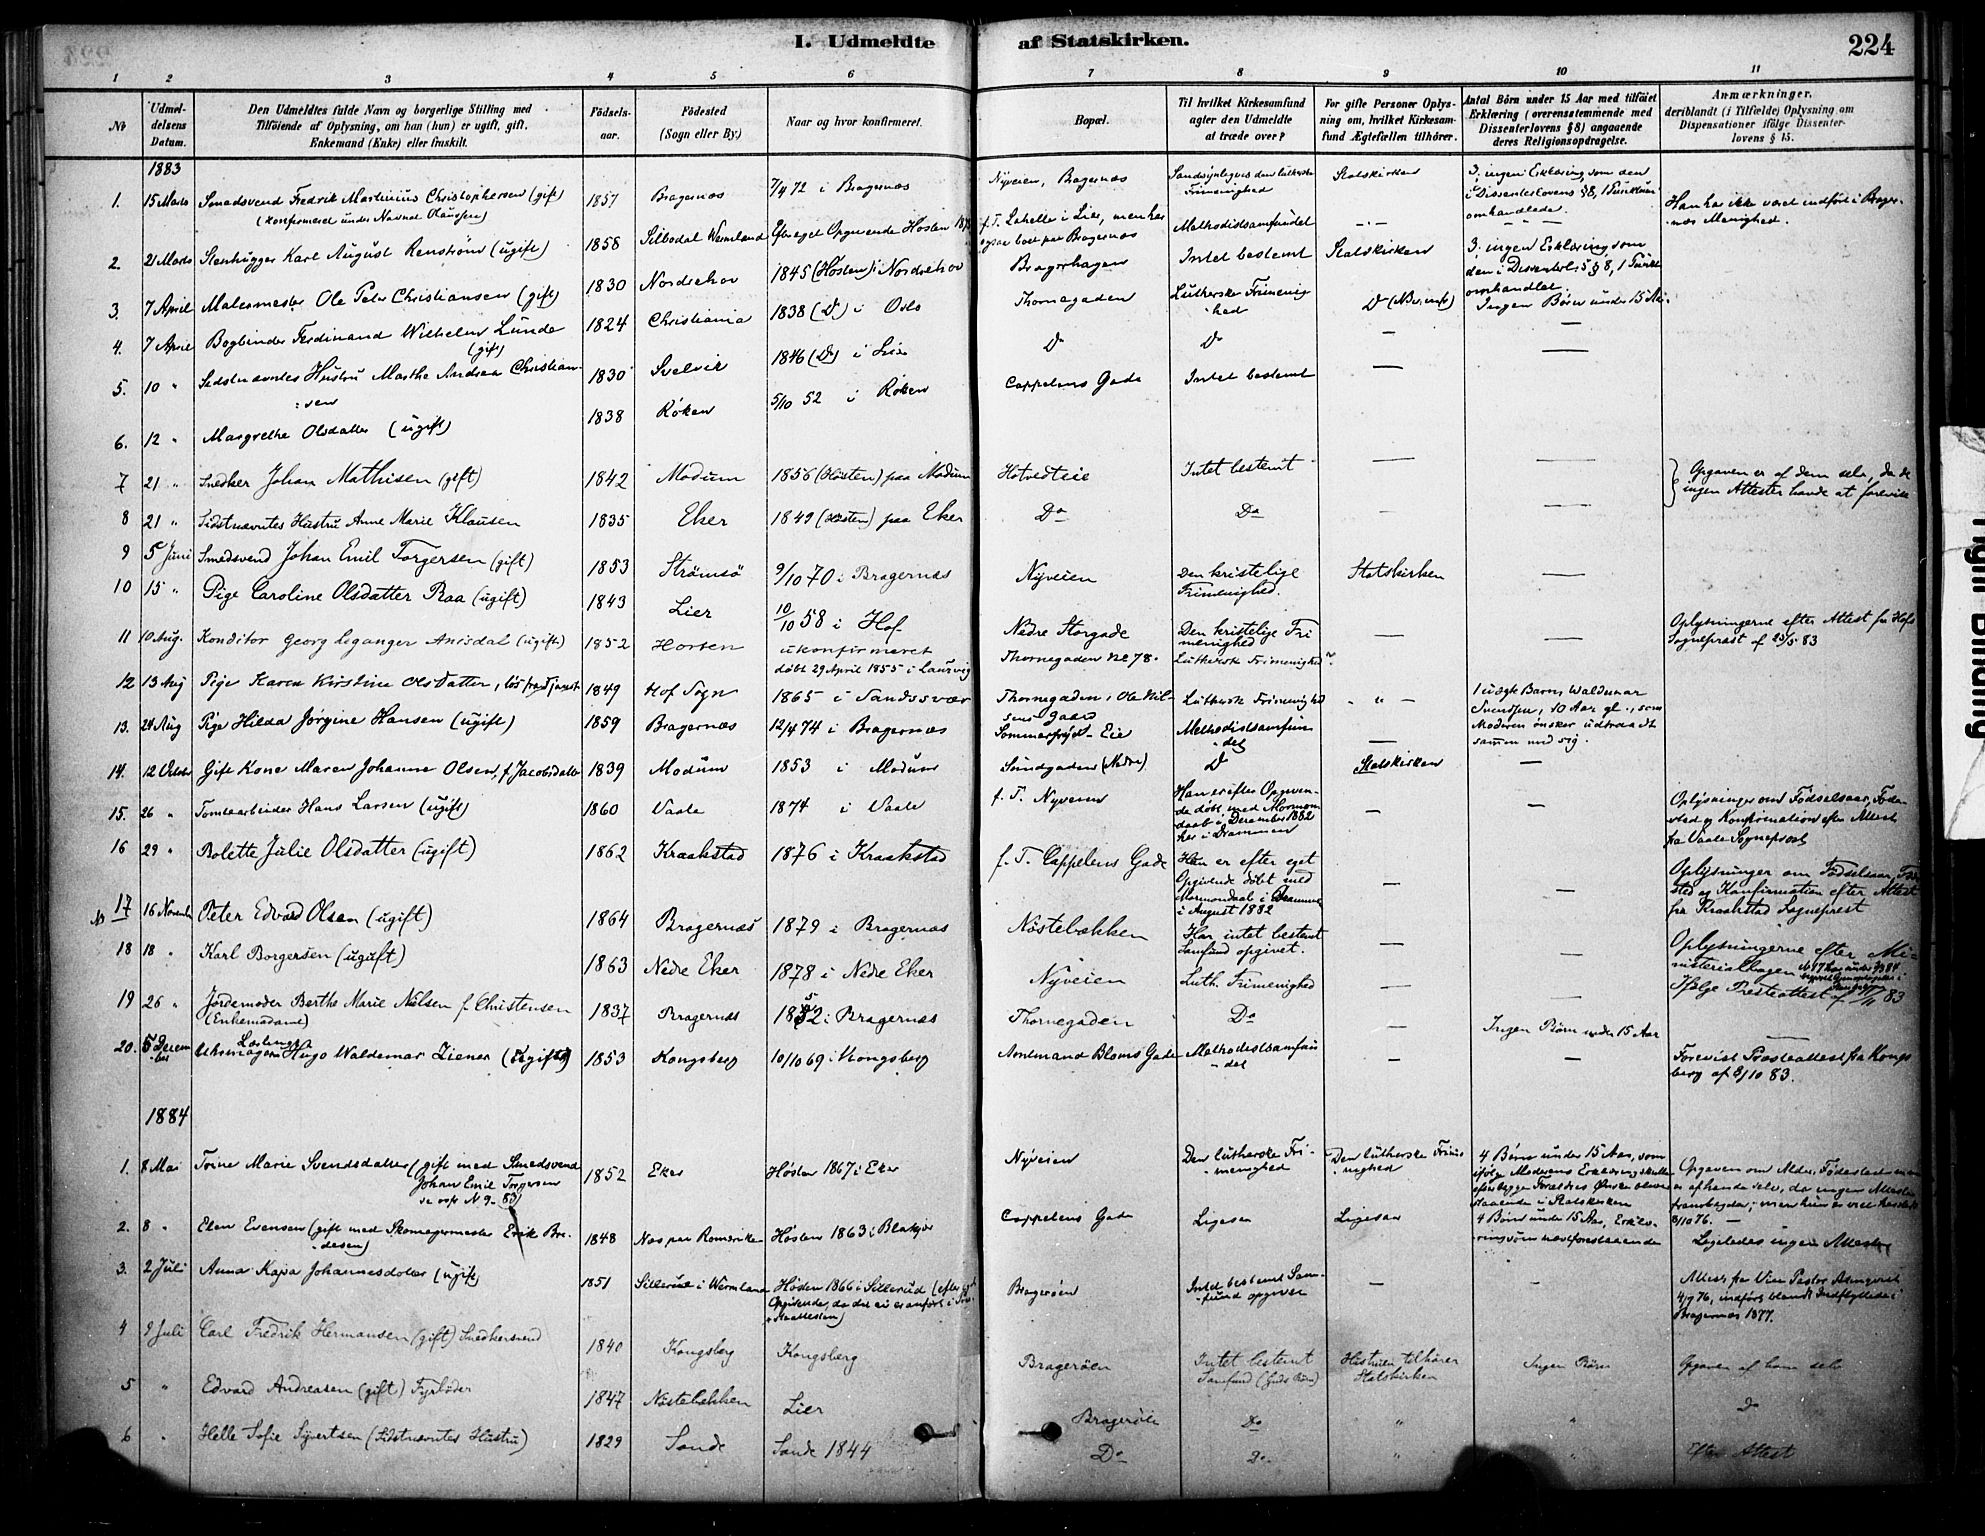 I. Udmeldte af Statskirken. 224
1 2 3 4 5 6 7 8 9 10 11
No
Udmel-
delsens
Datum.
Den Udmeldtes fulde Navn og borgerlige Stilling med
Tilføiende af Oplysning, om han (hun) er ugift, gift,
Enkemand (Enke) eller fraskilt.
Fødsels-
aar.
Fødested
(Sogn eller By.)
Naar og hvor konfirmeret.
Bopæl.
Til hvilket Kirkesamfund
agter den Udmeldte
at træde over?
For gifte Personer Oplys-
ning om, hvilket Kirkesam-
fund Ægtefællen tilhører.
Antal Børn under 15 Aar med tilføiet
Erklæring (overensstemmende med
Dissenterlovens § 8) angaaende
deres Religionsopdragelse.
Anmærkninger,
deriblandt (i Tilfælde) Oplysning om
Dispensationer ifølge Dissenter-
lovens § 15.
1883
1. 15 Marts Smedsvend Fredrik Martinius Christophersen (gift) 1857 Bragernæs 7/4 72 i Bragernæs Nyveien, Bragernæs Sandsynligvis den lutherske Statskirken 3; ingen Erklæring som den
(Konfirmeret under Navnet Olaussen) Frimenighed i Dissenterlovens § 8, 1 Punktum
omhandlede. Han har ikke været indført i Brager-
næs Menighed.
2. 21 Marts Stenhugger Karl August Renstrøm (ugift) 1858 Silbodal Wermland Efter eget Opgivende Høsten f. T. Lahelle i Lier, men har Methodistsamfundet
ogsaa boet paa Bragernæs
3. 7 April Malermester Ole Peter Christiansen (gift) 1830 Nordrehov 1845 (Høsten) i Nordrehov Bragerhagen Intet bestemt Statskirken 3; ingen Erklæring som
den i Dissenterl. § 8, 1 Punkt
omhandlet
4. 7 April Bogbinder Ferdinand Wilhelm Lunde 1824 Christiania 1838 (D) i Oslo Thornegaden Lutherske Frimenig- Ingen Børn under 15 Aar
(gift) hed
5. 10 " Sidstnævntes Hustru Marthe Andrea Christian- 1830 Svelvik 1846 (Do) i Lier Do Do —
sen
6. 12 " Margrethe Olsdatter (ugift) 1838 Røken 5/10 52 i Røken Cappelens Gade Intet bestemt —
7 21 " Snedker Johan Mathisen (gift) 1842 Modum 1856 (Høsten) paa Modum Hotvedteie Intet bestemt — — Opgaven er af dem selv, da de
ingen Attester havde at forevise
8 21 " Sidstnævntes Hustru Anne Marie Klausen 1835 Eker 1849 (Høsten) paa Eker Do Do — —
9 5 Juni Smedsvend Johan Emil Torgersen (gift) 1853 Strømsø 9/10 70 i Bragernæs Nyveien Den kristelige Statskirken —
Frimenighed.
10 15 " Pige Caroline Olsdatter Raa (ugift) 1843 Lier 10/10 58 i Hof Nedre Storgade Den kristelige Fri — — Oplysningerne efter Attest fra Hofs
menighed Sognepræst af 23/5 83
11 10 Aug. Konditor Georg Leganger Anisdal (ugift) 1852 Horten ukonfirmeret Thornegaden No 78. Luthersk Frimenighed
døbt 29 April 1855 i Laurvig
12 13 Aug Pige Karen Kirstine Olsdatter, løs fra Tjenest 1849 Hof Sogn 1865 i Sandsvær Thornegaden i Ole Nil- Luthersk Frimenighed - " - 1 uægte Barn, Waldemar
sens Gaard Svendsen, 10 Aar gl., som
Moderen ønsker udtraadt
sammen med sig.
13. 24 Aug Pige Hilda Jørgine Hansen (ugift) 1859 Bragernæs 12/4 74 i Bragernæs Sommerfryd - Eie Methodistsamfun- —
det
14. 12 October Gift Kone Maren Johanne Olsen, f. Jacobsdatter 1839 Modum 1853 i Modum Sundgaden (Nedre) Do Statskirken —
15. 26 " Tomtearbeider Hans Larsen (ugift) 1860 Vaale 1874 i Vaale f. T. Nyveien Han er efter Opgiven- — — Oplysninger om Fødselsaar, Føde-
de døbt med Mormon- sted og Konfirmation efter Attest
daab i December 1882 fra Vaale Sognepræst
her i Drammen
16 29 " Bolette Julie Olsdatter (ugift) 1862 Kraakstad 1876 i Kraakstad f. T. Cappelens Gade Hun er efter eget — — Oplysninger om Fødselsaar, Føde-
Opgivende døbt med sted og Konfirmation efter Attest
Mormondaab i Drammen fra Kraakstad Sognepræst
i August 1882
No 17 16 November Peter Edvard Olsen (ugift) 1864 Bragernæs 1879 i Bragernæs Nøstebækken Har intet bestemt — — Oplysningerne efter Mi-
Samfund opgivet. nisterialbogen
18 18 " Karl Borgersen (ugift) 1863 Nedre Eker 1878 i Nedre Eker Nyveien Luth. Frimenighed — — Ifølge Præsteattest af 17/11 83
19 26 " Jordemoder Berthe Marie Nilsen f. Christensen 1837 Bragernæs 1852 i Bragernæs Thornegaden Do — Ingen Børn under 15 Aar —
(Enkemadame)
20. 5 Decem- Uhrmager Lærling Hugo Waldemar Ziener (ugift) 1853 Kongsberg 10/10 69 i Kongsberg Amtmand Bloms Gade Methodistsamfun- — — Forevist Præsteattest fra Kongs
ber det berg af 8/10 83.
1884
1. 8 Mai Torine Marie Svendsdatter (gift med Smedsvend 1852 Eker Høsten 1867 i Eker Nyveien Den lutherske Fri- Den lutherske Frime- 4 Børn under 15 Aar, som
Johan Emil Torgersen menighed nighed ifølge Moderens Erklæring skulle
se ovfr N 9 - 83) efter begge Forældres Ønske blive
staaende i Statskirken
Opgaven om Alder, Fødested
er af hende selv, da ingen Attester
8/10 76.
2. 8 " Elen Evensen (gift med Skomagermester Erik Bre- 1848 Næs paa Romerike Høsten 1863 i Blakjer Cappelens Gade Ligesaa Ligesaa 4 Børn under 15 Aar, Erklæ-
desen) ring som næstforestaaende Ligeledes ingen Attester
3. 2 Juli Anna Kajsa Johannesdotter (ugift) 1851 Sillerud i Wermland Høsten 1866 i Sillerud (efter eget Bragerøen Intet bestemt Sam- — — Attest fra Vice Pastor
Opgivende, da det ei er anført i fund opgivet 4/9 76, indført blandt Indflyttede i
Bragernæs 1877.
4 9 Juli Carl Fredrik Hermansen (gift) Snedkersvend 1840 Kongsberg Kongsberg Bragerøen Intet bestemt Hustruen tilhører Ingen Børn Opgaven af ham selv
Samfund (Guds Børn) Statskirken
5 " Edvard Andreasen (gift) Fyrbøder 1847 Nøstebækken Lier Bragerøen Do " " Do
6 " Helle Sofie Syvertsen (Sidstnævntes Hustru) 1829 Sande Sande 1844 Do Do " " Efter Attest